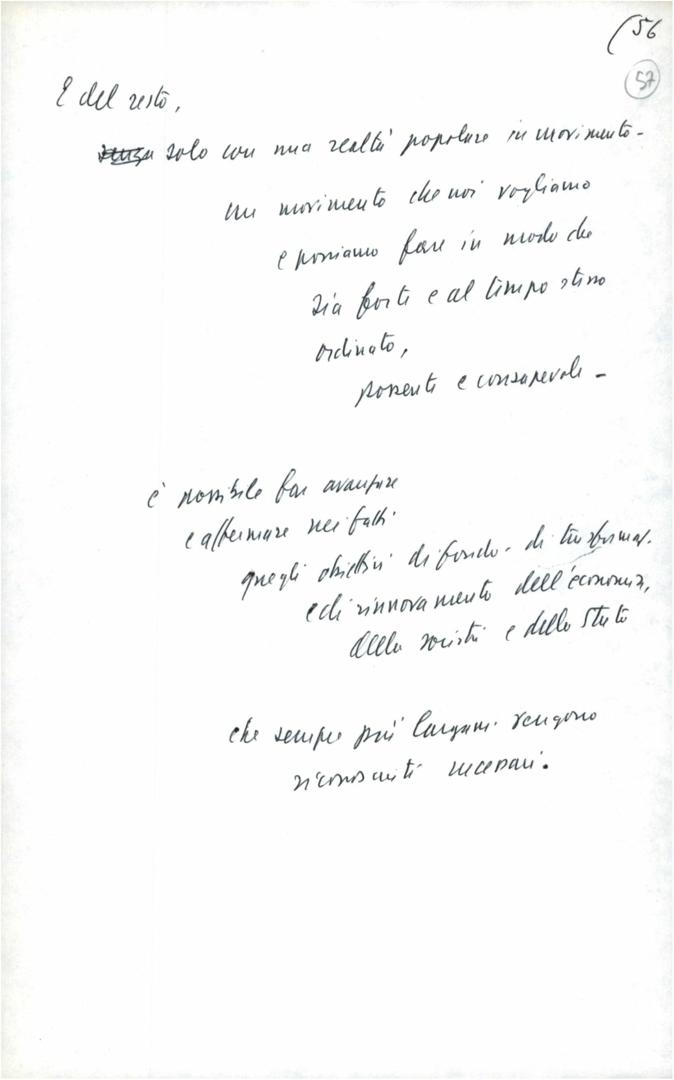 (56
57
E del resto,
senza solo con una realtà popolare in movimento -
un movimento che noi vogliamo
e possiamo fare in modo che
sia forte e al tempo stesso
ordinato,
possente e consapevole -
è possibile far avanzare
e affermare nei fatti
quegli obiettivi di fondo - di trasformaz.
e di rinnovamento dell'economia,
della società e dello Stato
che sempre più largam. vengono
riconosciuti necessari.